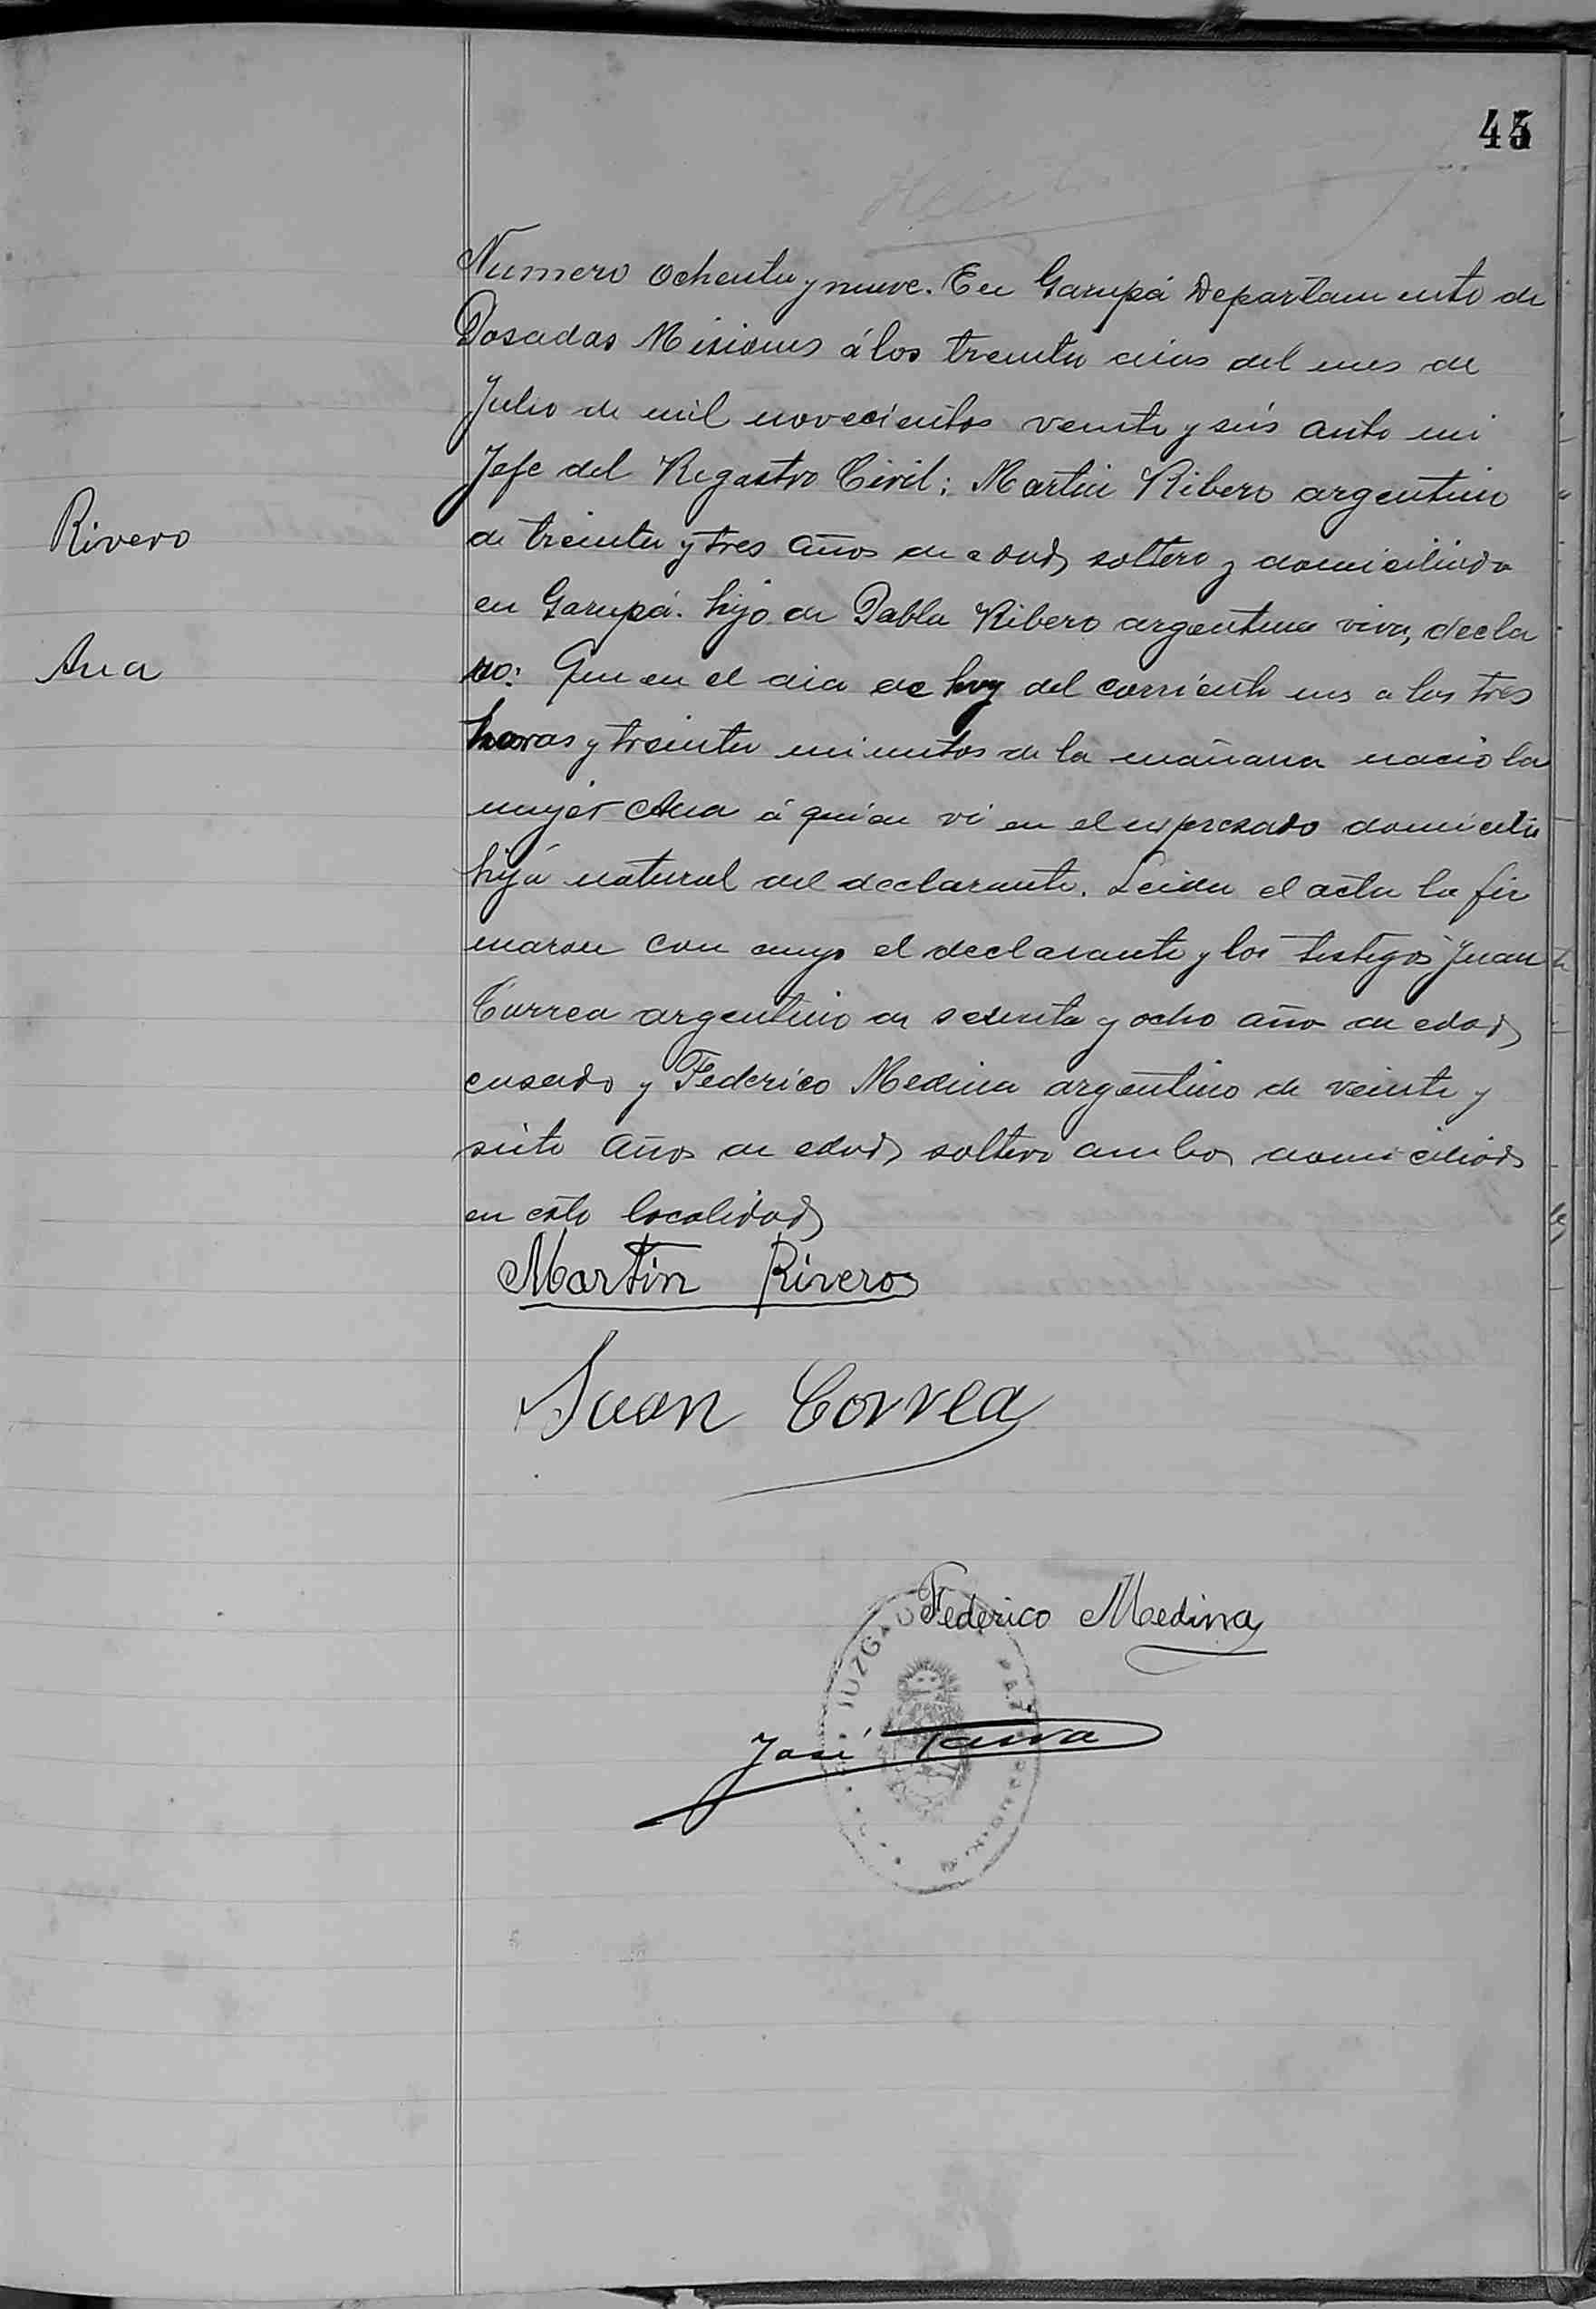 45
Numero ochenta y nueve. En Garupá Departamento de
Posadas Misiones á los treinta dias del mes de
Julio de mil novecientos veinte y seis ante mi
Jefe del Regastro Civil; Martin Ribero argentino
Rivero
de treinta y tres años de edad, soltero y domiciliado
en Garupá. hijo de Pabla Ribero argentina viva, decla
Ana
ro: Que en el dia de hoy del corriente mes a las tres
horas y treinta minutos de la mañana nacio la
mujer Ana á quien vi en el expresado domicilio
hija natural del declarante. Leida el acta la fir
maron con migo el declarante y los testigos Juan
Currea argentino de sesenta y ocho año de edad
casado y Federico Medina argentino de veinte y
siete años de edad soltero ambos domiciliads
en esta localidad
Martín Rivero
Juan Correa
Federico Medina
JUZGADO PAZ
José